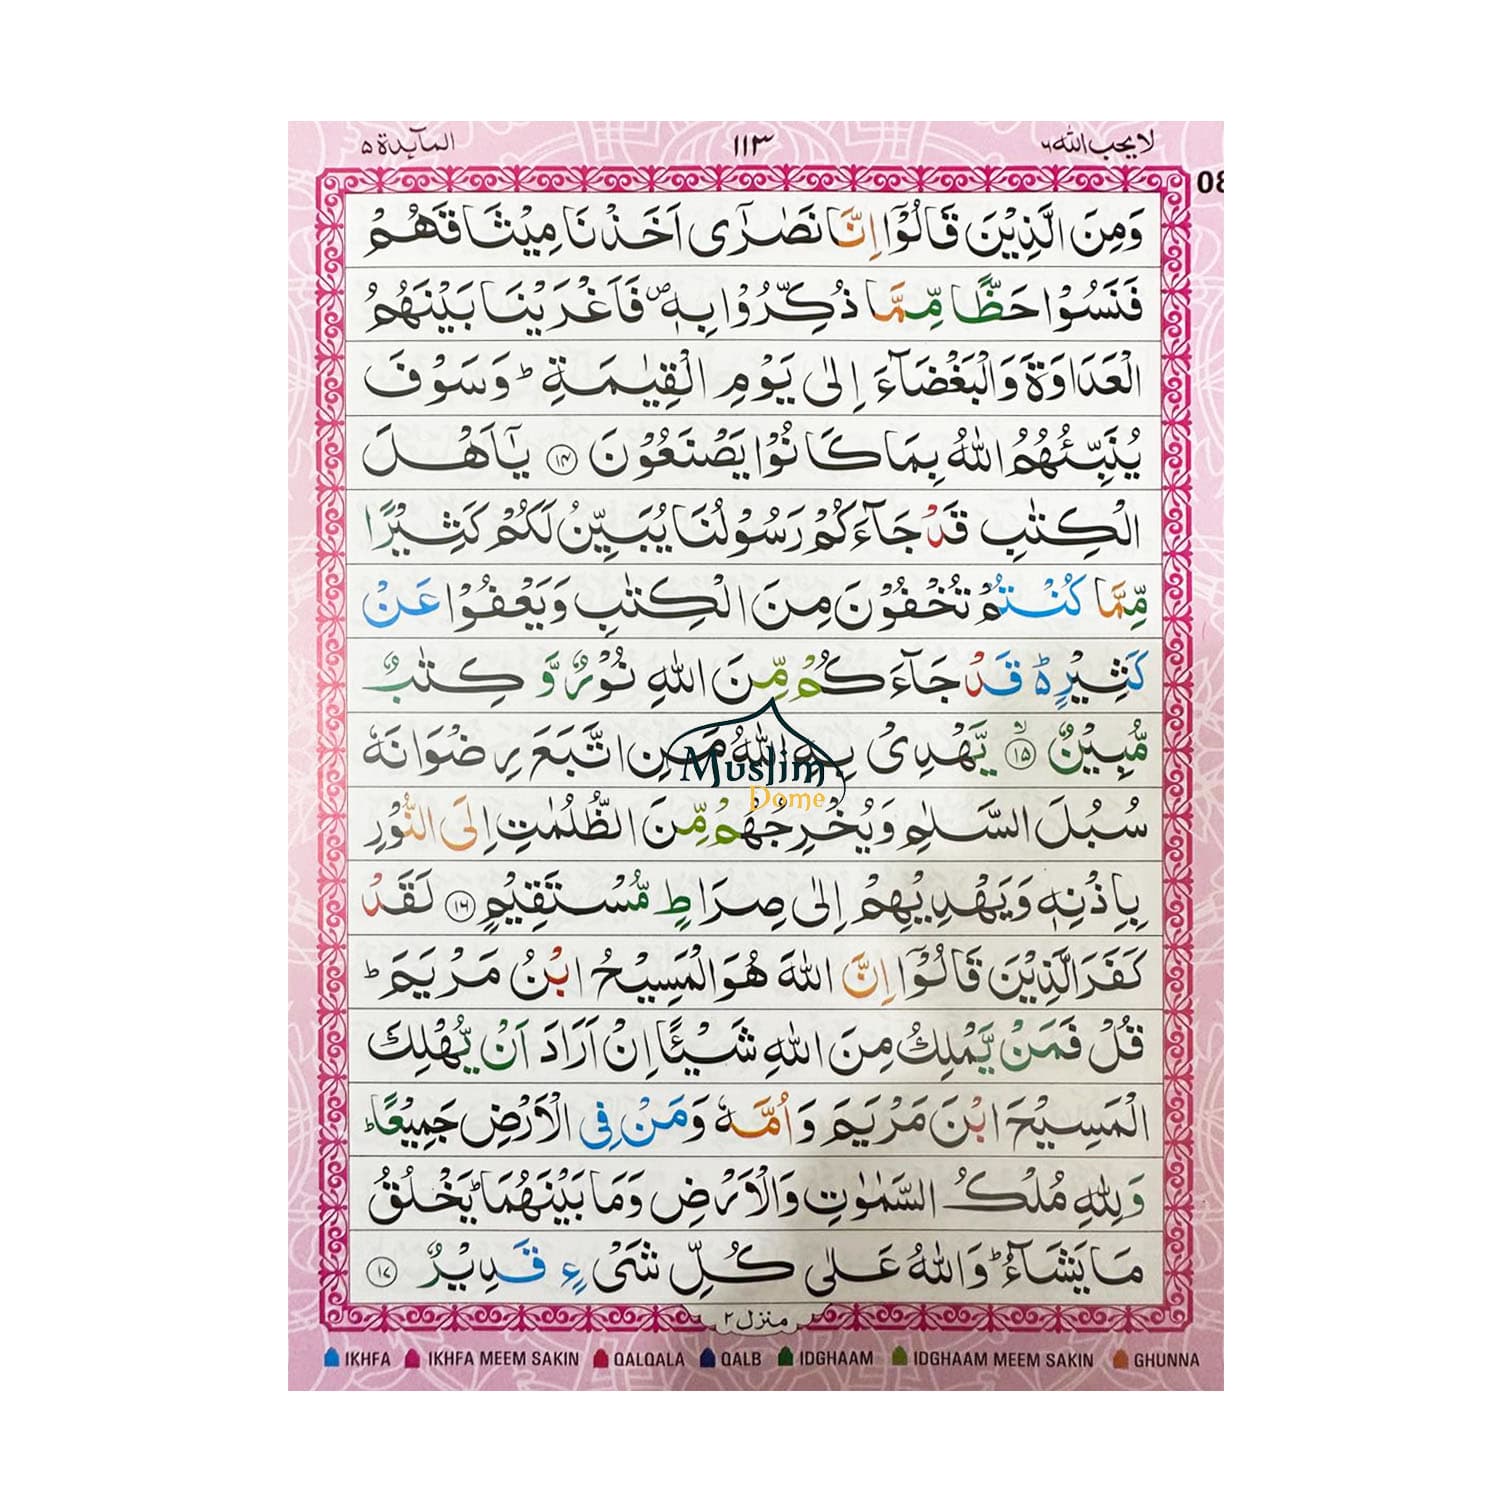 لا يحب الله ۶
۱۱۳
المآىدة ۵
08
وَمِنَ الَّذِيْنَ قَالُوْٓا اِنَّا نَصٰرٰٓى اَخَذْنَا مِيْثَاقَهُمْ
فَنَسُوْا حَظًّا مِّمَّا ذُكِّرُوْا بِهٖ ص فَاَغْرَيْنَا بَيْنَهُمُ
الْعَدَاوَةَ وَالْبَغْضَآءَ اِلٰى يَوْمِ الْقِيٰمَةِ ؕ وَسَوْفَ
يُنَبِّئُهُمُ اللّٰهُ بِمَا كَانُوْا يَصْنَعُوْنَ ۱۴ يٰٓاَهْلَ
الْكِتٰبِ قَدْ جَآءَكُمْ رَسُوْلُنَا يُبَيِّنُ لَكُمْ كَثِيْرًا
مِّمَّا كُنْتُمْ تُخْفُوْنَ مِنَ الْكِتٰبِ وَيَعْفُوْا عَنْ
كَثِيْرٍ ؕ قَدْ جَآءَكُمْ مِّنَ اللّٰهِ نُوْرٌ وَّ كِتٰبٌ
مُّبِيْنٌ ۙ ۱۵ يَّهْدِيْ بِهِ اللّٰهُ مَنِ اتَّبَعَ رِضْوَانَهٗ
سُبُلَ السَّلٰمِ وَيُخْرِجُهُمْ مِّنَ الظُّلُمٰتِ اِلَى النُّوْرِ
بِاِذْنِهٖ وَيَهْدِيْهِمْ اِلٰى صِرَاطٍ مُّسْتَقِيْمٍ ۱۶ لَقَدْ
كَفَرَ الَّذِيْنَ قَالُوْٓا اِنَّ اللّٰهَ هُوَ الْمَسِيْحُ ابْنُ مَرْيَمَ ؕ
قُلْ فَمَنْ يَّمْلِكُ مِنَ اللّٰهِ شَيْـًٔا اِنْ اَرَادَ اَنْ يُّهْلِكَ
الْمَسِيْحَ ابْنَ مَرْيَمَ وَاُمَّهٗ وَمَنْ فِى الْاَرْضِ جَمِيْعًا ؕ
وَلِلّٰهِ مُلْكُ السَّمٰوٰتِ وَالْاَرْضِ وَمَا بَيْنَهُمَا ؕ يَخْلُقُ
مَا يَشَآءُ ؕ وَاللّٰهُ عَلٰى كُلِّ شَىْءٍ قَدِيْرٌ ۱۷
Muslim
Dome
منزل ۲
IKHFA IKHFA MEEM SAKIN QALQALA QALB IDGHAAM IDGHAAM MEEM SAKIN GHUNNA